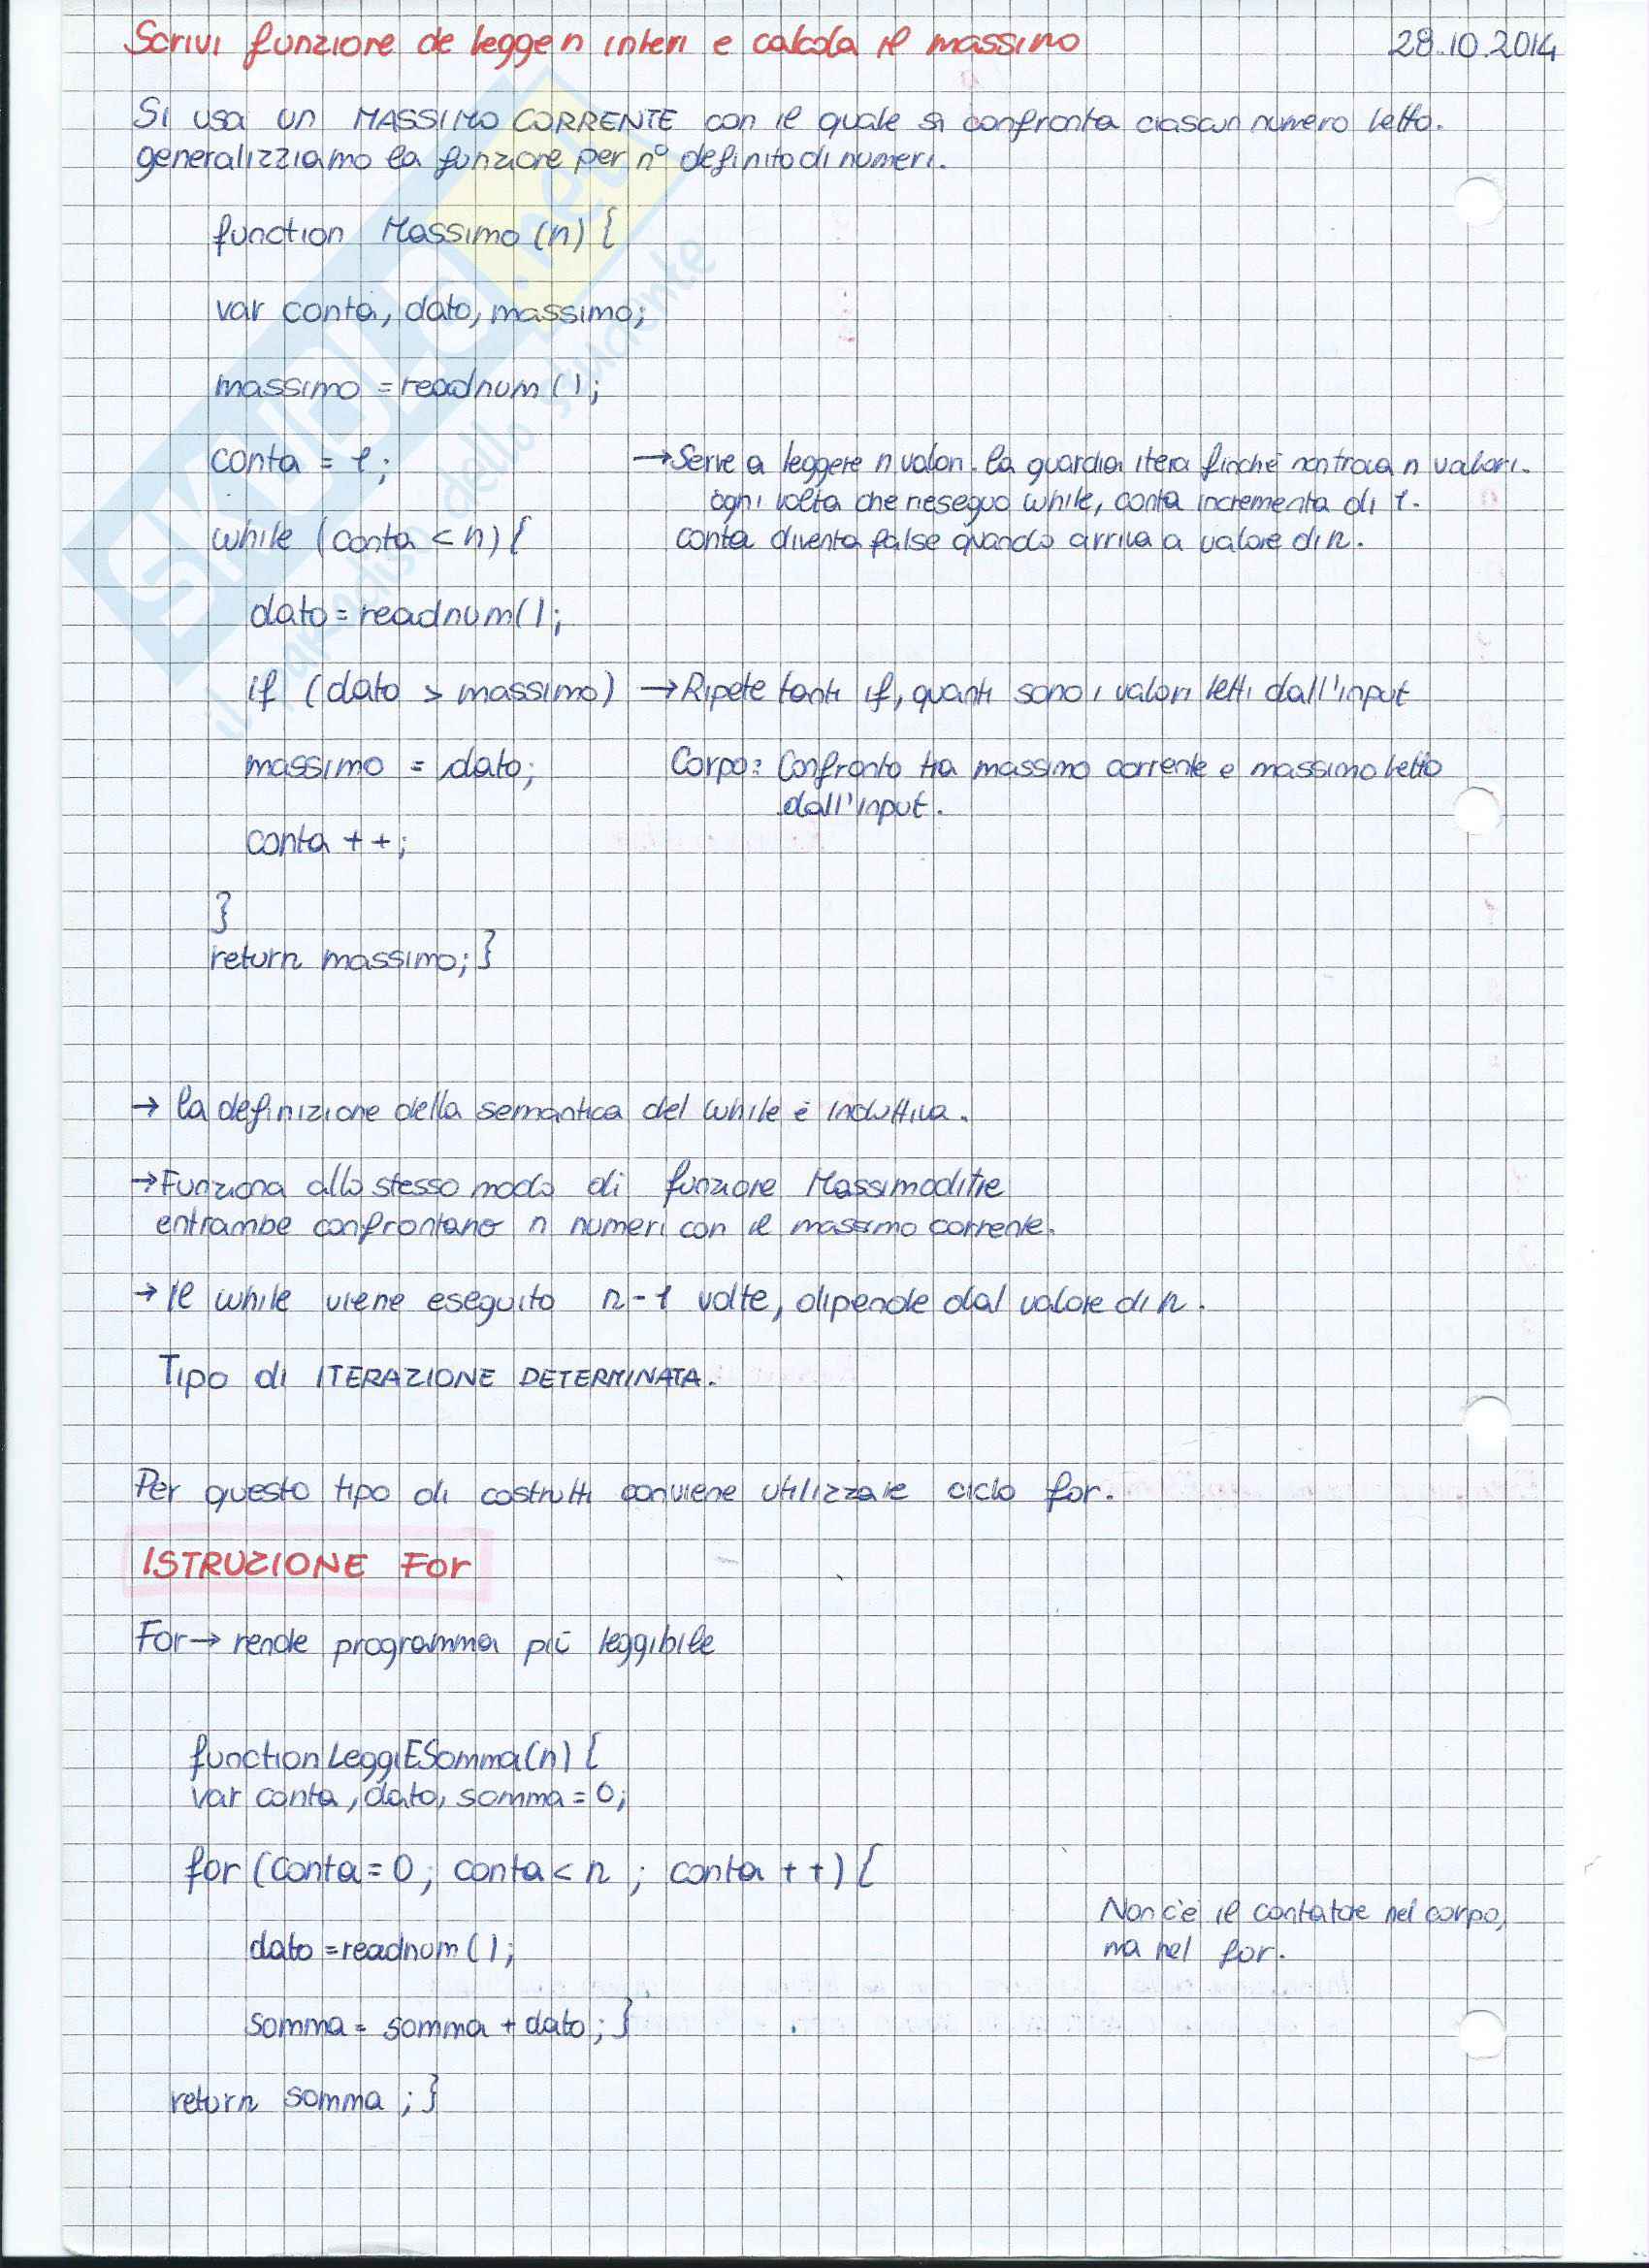 Scrivi funzione che legge n interi e calcola il massimo
28.10.2014
Si usa un MASSIMO CORRENTE con il quale si confronta ciascun numero letto.
generalizziamo la funzione per n° definito di numeri.
function Massimo (n) {
var conta, dato, massimo;
massimo = readnum ();
conta = 1;
→ Serve a leggere n valori. la guardia itera finché non trova n valori.
ogni volta che rieseguo while, conta incrementa di 1.
while (conta < n) {
conta diventa false quando arriva a valore di n.
dato = readnum();
if (dato > massimo) → Ripete tanti if, quanti sono i valori letti dall'input
massimo = dato;
Corpo: Confronto tra massimo corrente e massimo letto
dall'input.
conta ++;
}
return massimo; }
→ la definizione della semantica del while è induttiva.
→ Funziona allo stesso modo di funzione Massimoditre
entrambe confrontano n numeri con il massimo corrente.
→ il while viene eseguito n-1 volte, dipende dal valore di n.
Tipo di ITERAZIONE DETERMINATA.
Per questo tipo di costrutti conviene utilizzare ciclo for.
ISTRUZIONE For
For → rende programma più leggibile
function LeggiESomma(n) {
var conta, dato, somma = 0;
for (conta = 0; conta < n ; conta ++) {
Non c'è il contatore nel corpo,
ma nel for.
dato = readnum ();
somma = somma + dato ; }
return somma ; }
SKUOLA.net
il paradiso dello studente